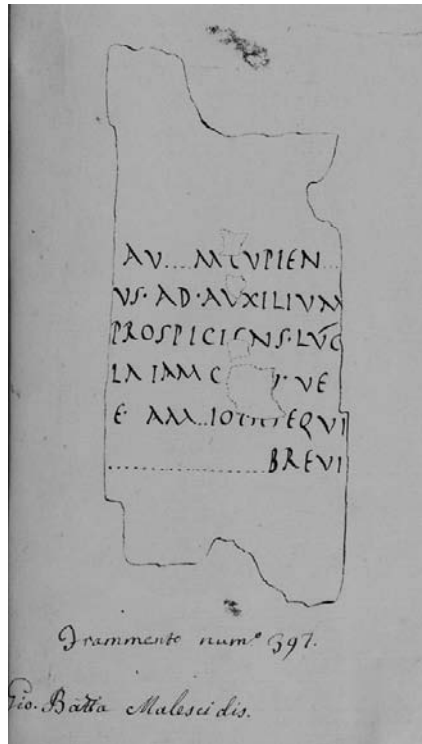 AV....M CVPIEN...
VS·AD·AVXILIVM
PROSPICIENS·LVC
LA IAM C VE
E AM..IO EQVI
....................BREVI
Frammento num.º 397.
Gio. Batta Malesci dis.